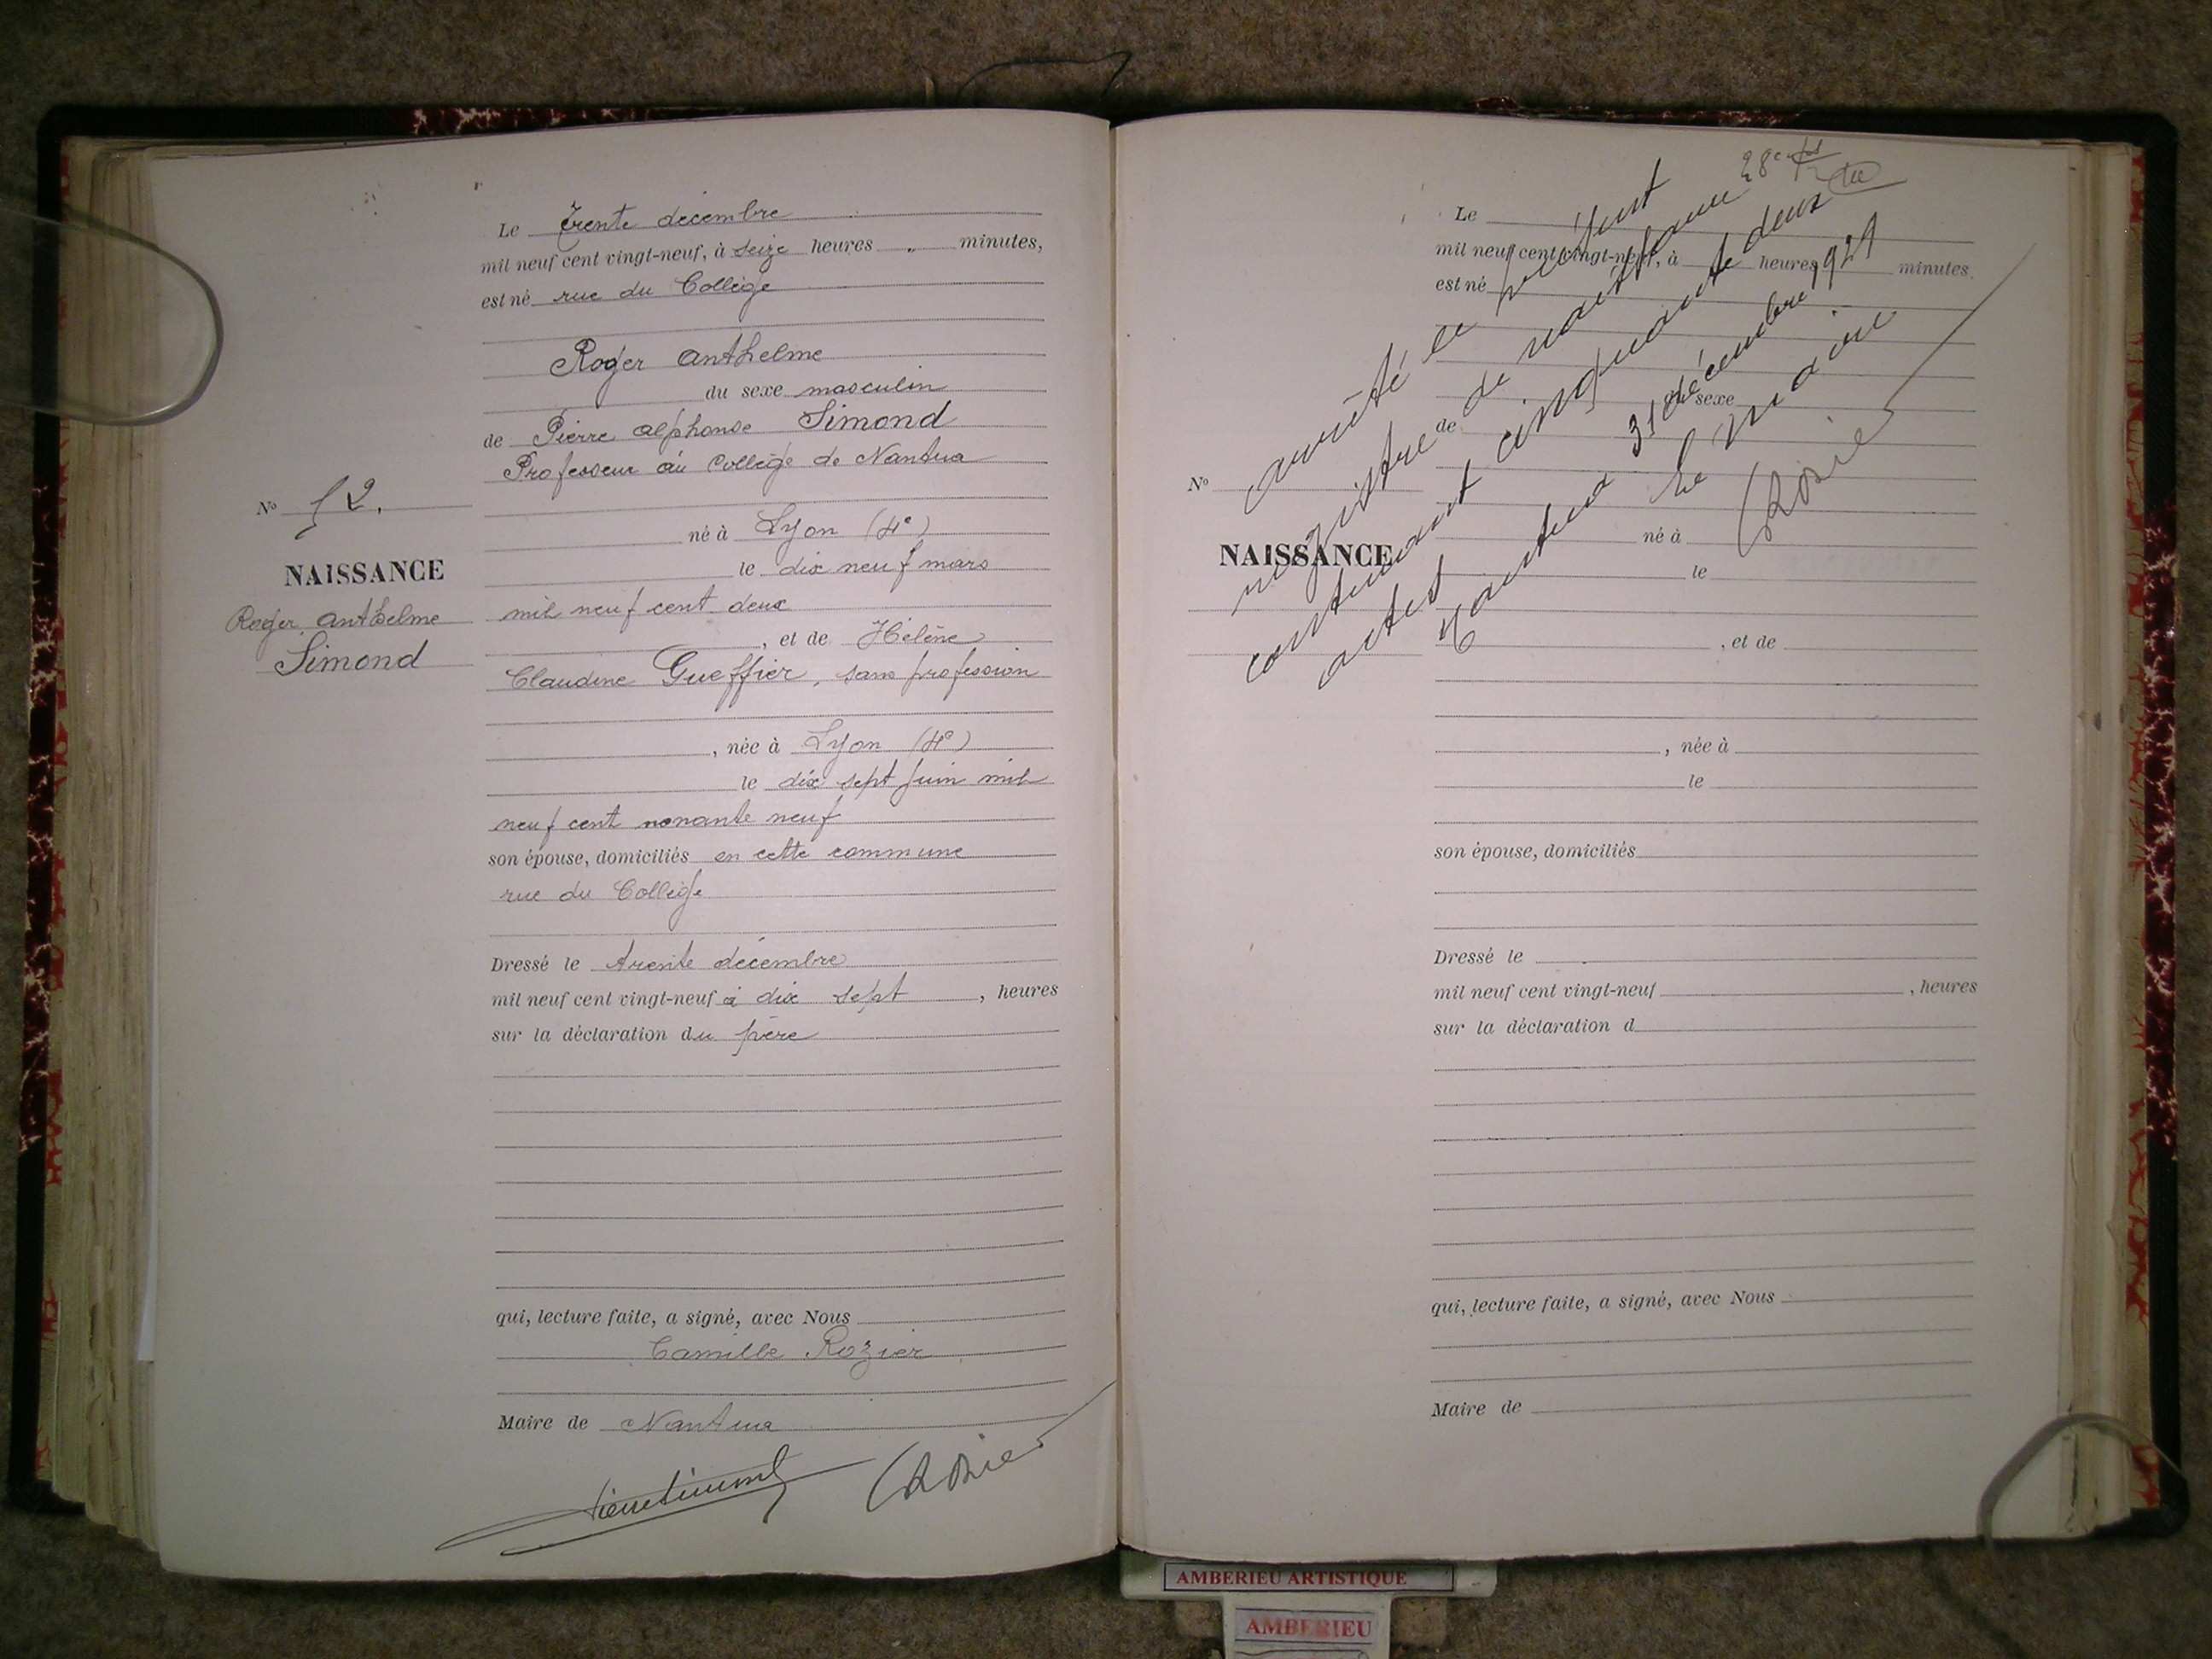 Le Trente décembre
mil neuf cent vingt-neuf, à seize heures " minutes,
est né rue du Collège
Roger Anthelme
du sexe masculin
de Pierre Alphonse Simond
Professeur au Collège de Nantua
né à Lyon (4e)
le dix neuf mars
mil neuf cent deux
, et de Hélène
Claudine Gueffier, sans profession
, née à Lyon (4e)
le dix sept juin mil
neuf cent nonante neuf
son épouse, domiciliés en cette commune
rue du Collège
Dressé le trente décembre
mil neuf cent vingt-neuf à dix sept , heures
sur la déclaration du père
qui, lecture faite, a signé, avec Nous
Camille Rozier
Maire de Nantua
No 52.
NAISSANCE
Roger Anthelme
Simond
Le
mil neuf cent vingt-neuf, à heures minutes
est né
du sexe
de
né à
le
, et de
, née à
le
son épouse, domiciliés
Dressé le
mil neuf cent vingt-neuf , heures
sur la déclaration d
qui, lecture faite, a signé, avec Nous
Maire de
No
NAISSANCE
arrêté le présent
registre de naissance
contenant cinquante deux
actes
Nantua 31 décembre 1929
Le maire
CRozier
AMBERIEU ARTISTIQUE
AMBERIEU